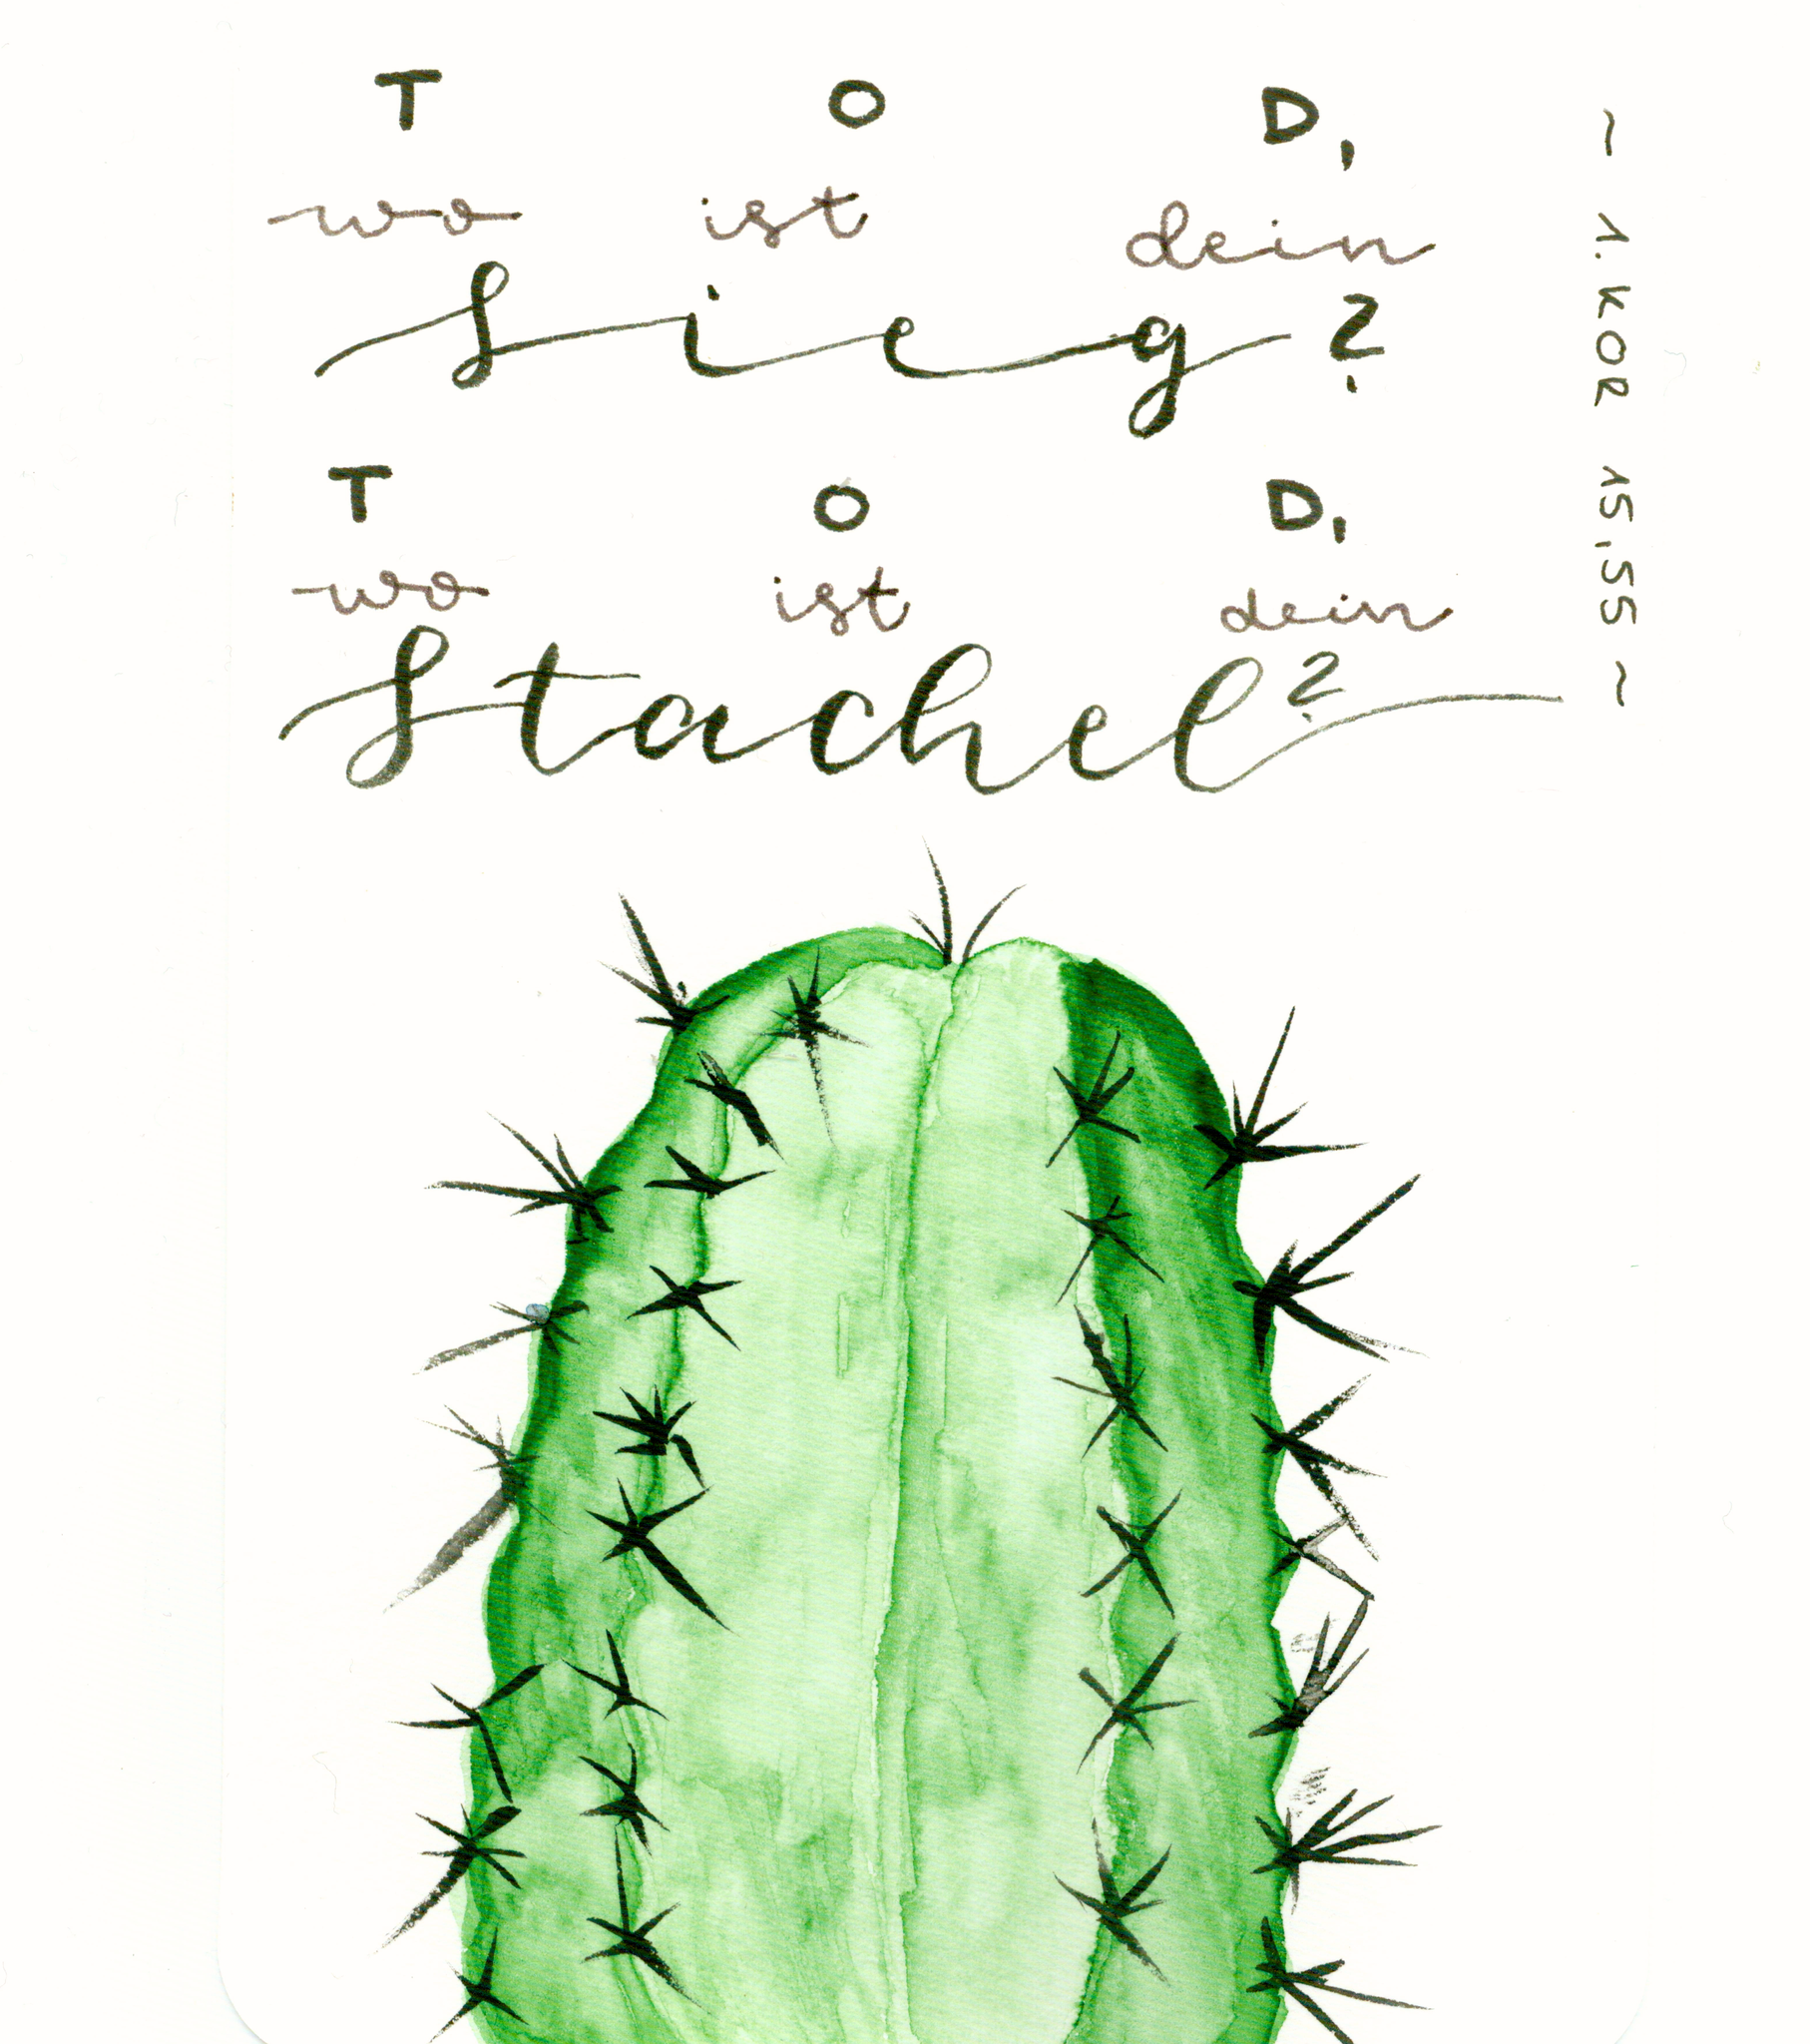 TOD,
wo ist dein
sieg?
TOD,
wo ist dein
stachel?
~ 1. KOR 15,55 ~